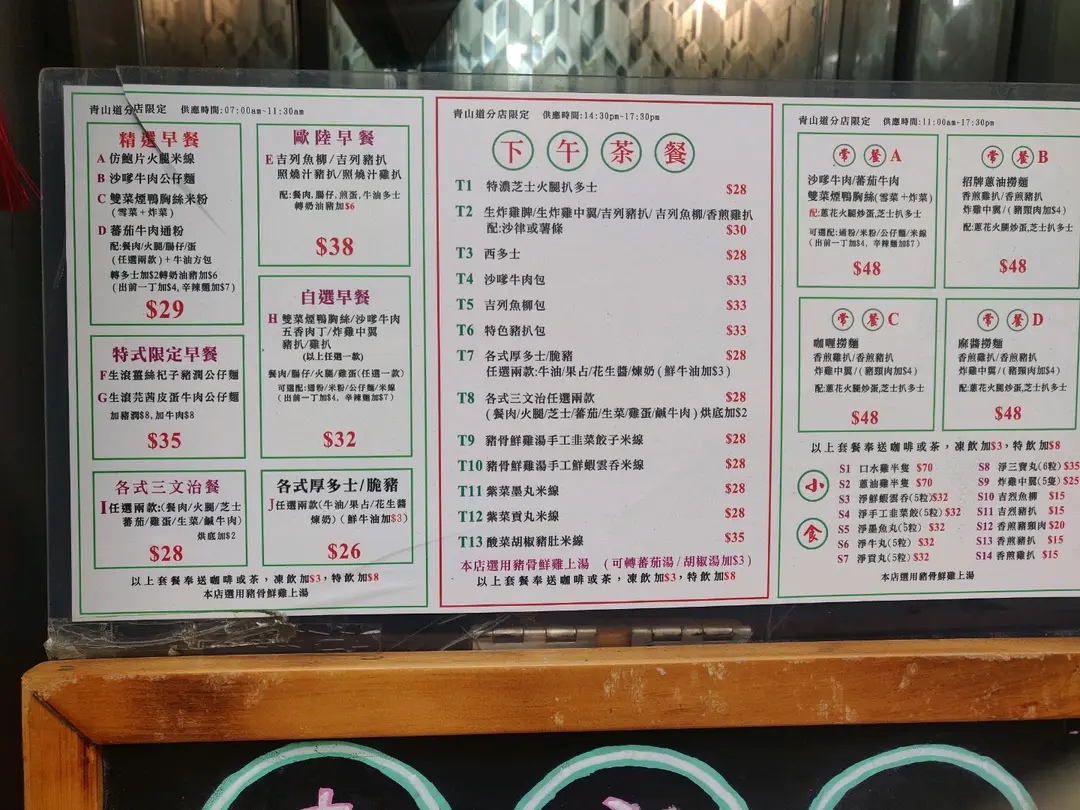 青山道分店限定 供應時間:07:00am~11:30am
精選早餐
A 仿鮑片火腿米線
B 沙嗲牛肉公仔麵
C 雙菜煙鴨胸絲米粉
(雪菜+炸菜)
D 蕃茄牛肉通粉
配:餐肉/火腿/腸仔/蛋
(任選兩款)+牛油方包
轉多士加$2轉奶油豬加$6
(出前一丁加$4,辛辣麵加$7)
$29
特式限定早餐
F生滾薑絲杞子豬潤公仔麵
G生滾芫茜皮蛋牛肉公仔麵
加豬潤$8,加牛肉$8
$35
各式三文治餐
I任選兩款:(餐肉/火腿/芝士
蕃茄/雞蛋/生菜/鹹牛肉)
烘底加$2
$28
歐陸早餐
E吉列魚柳/吉列豬扒
照燒汁豬扒/照燒汁雞扒
配:餐肉,腸仔,煎蛋,牛油多士
轉奶油豬加$6
$38
自選早餐
H 雙菜煙鴨胸絲/沙嗲牛肉
五香肉丁/炸雞中翼
豬扒/雞扒
(以上任選一款)
餐肉/腸仔/火腿/雞蛋(任選一款)
可選配:通粉/米粉/公仔麵/米線
(出前一丁加$4, 辛辣麵加$7)
$32
各式厚多士/脆豬
J任選兩款(牛油/果占/花生醬
煉奶) (鮮牛油加$3)
$26
以上套餐奉送咖啡或茶,凍飲加$3,特飲加$8
本店選用豬骨鮮雞上湯
青山道分店限定 供應時間:14:30pm~17:30pm
下午茶餐
T1 特濃芝士火腿扒多士 $28
T2 生炸雞脾/生炸雞中翼/吉列豬扒/吉列魚柳/香煎雞扒
配:沙律或薯條 $30
T3 西多士 $28
T4 沙嗲牛肉包 $33
T5 吉列魚柳包 $33
T6 特色豬扒包 $33
T7 各式厚多士/脆豬 $28
任選兩款:牛油/果占/花生醬/煉奶(鮮牛油加$3)
T8 各式三文治任選兩款 $28
(餐肉/火腿/芝士/蕃茄/生菜/雞蛋/鹹牛肉)烘底加$2
T9 豬骨鮮雞湯手工韭菜餃子米線 $28
T10 豬骨鮮雞湯手工鮮蝦雲呑米線 $28
T11 紫菜墨丸米線 $28
T12 紫菜貢丸米線 $28
T13 酸菜胡椒豬肚米線 $35
本店選用豬骨鮮雞上湯 (可轉蕃茄湯/胡椒湯加$3)
以上套餐奉送咖啡或茶,凍飲加$3,特飲加$8
青山道分店限定 供應時間:11:00am~17:30pm
常餐A
沙嗲牛肉/蕃茄牛肉
雙菜煙鴨胸絲(雪菜+炸菜)
配:蔥花火腿炒蛋,芝士扒多士
可選配:通粉/米粉/公仔麵/米線
(出前一丁加$4, 辛辣麵加$7)
$48
常餐B
招牌蔥油撈麵
香煎雞扒/香煎豬扒
炸雞中翼/(豬頸肉加$4)
配:蔥花火腿炒蛋,芝士扒多士
$48
常餐C
咖喱撈麵
香煎雞扒/香煎豬扒
炸雞中翼/(豬頸肉加$4)
配:蔥花火腿炒蛋,芝士扒多士
$48
常餐D
麻醬撈麵
香煎雞扒/香煎豬扒
炸雞中翼/(豬頸肉加$4)
配:蔥花火腿炒蛋,芝士扒多士
$48
以上套餐奉送咖啡或茶,凍飲加$3,特飲加$8
小食
S1 口水雞半隻 $70
S2 蔥油雞半隻 $70
S3 淨鮮蝦雲呑(5粒)$32
S4 淨手工韭菜餃(5粒)$32
S5 淨墨魚丸(5粒) $32
S6 淨牛丸(5粒) $32
S7 淨貢丸(5粒) $32
S8 淨三寶丸(6粒)$35
S9 炸雞中翼(5隻)$25
S10 吉烈魚柳 $15
S11 吉烈豬扒 $15
S12 香煎豬頸肉 $20
S13 香煎豬扒 $15
S14 香煎雞扒 $15
本店選用豬骨鮮雞上湯